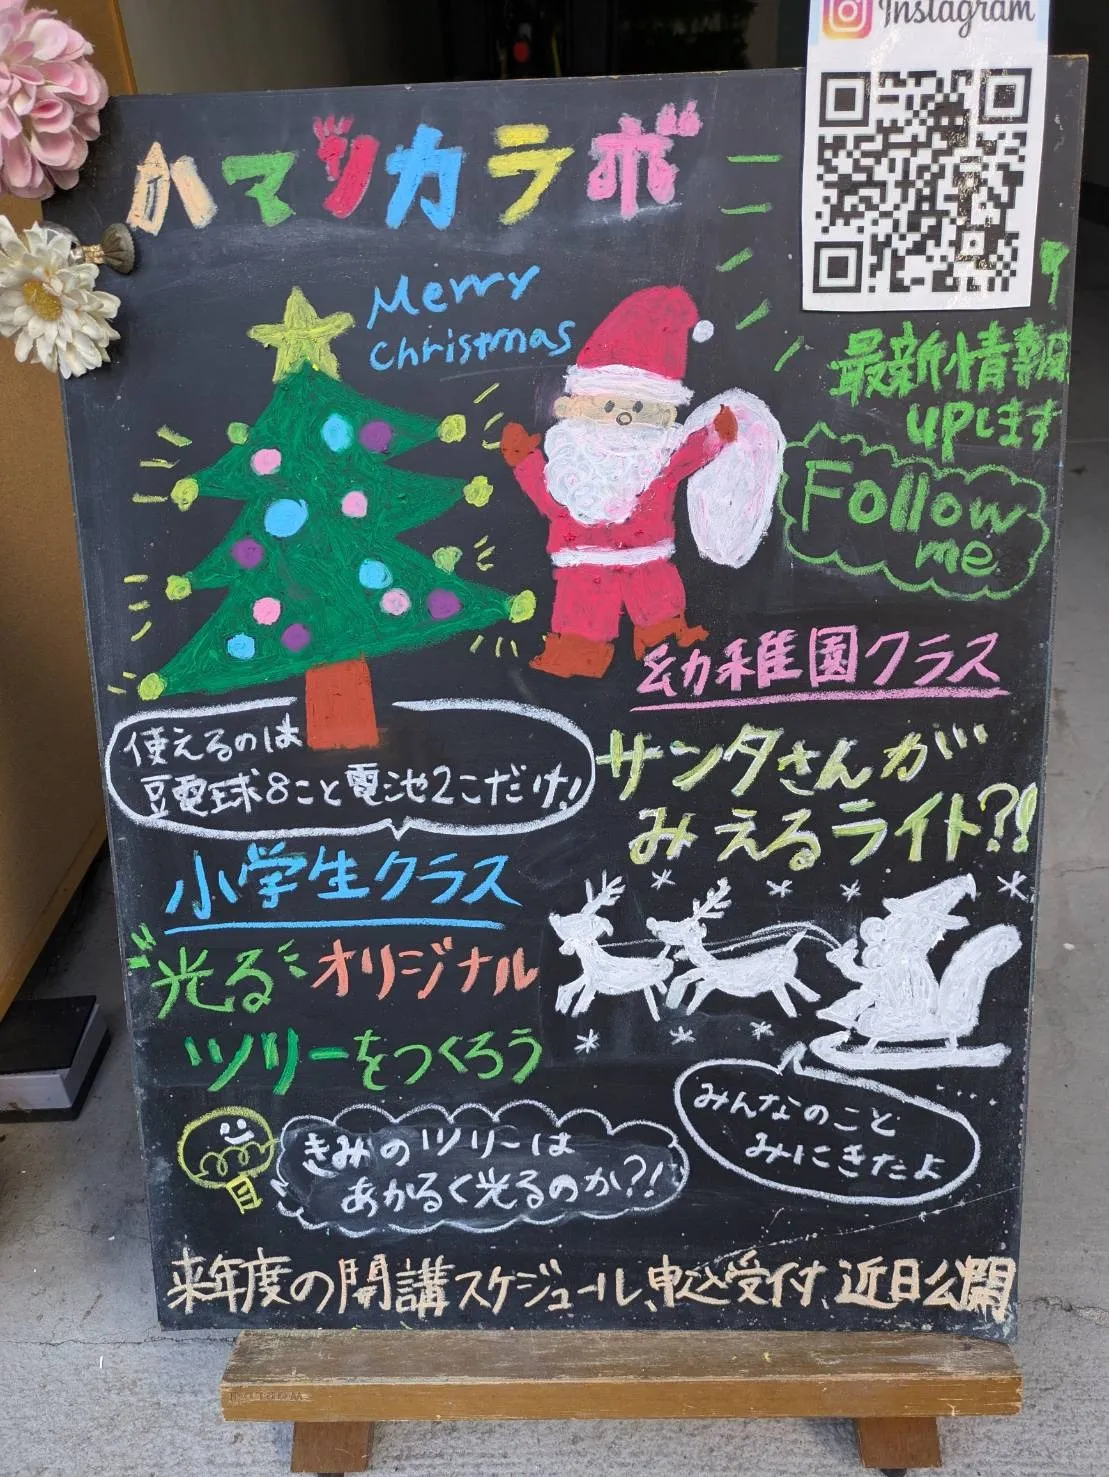 Instagram
ハマヅカラボ
Merry
Christmas
最新情報
upします
Follow
me
幼稚園クラス
サンタさんが
みえるライト?!
使えるのは
豆電球8こと電池2こだけ!
小学生クラス
光るオリジナル
ツリーをつくろう
みんなのこと
みにきたよ
きみのツリーは
あかるく光るのか?!
来年度の開講スケジュール、申込受付、近日公開